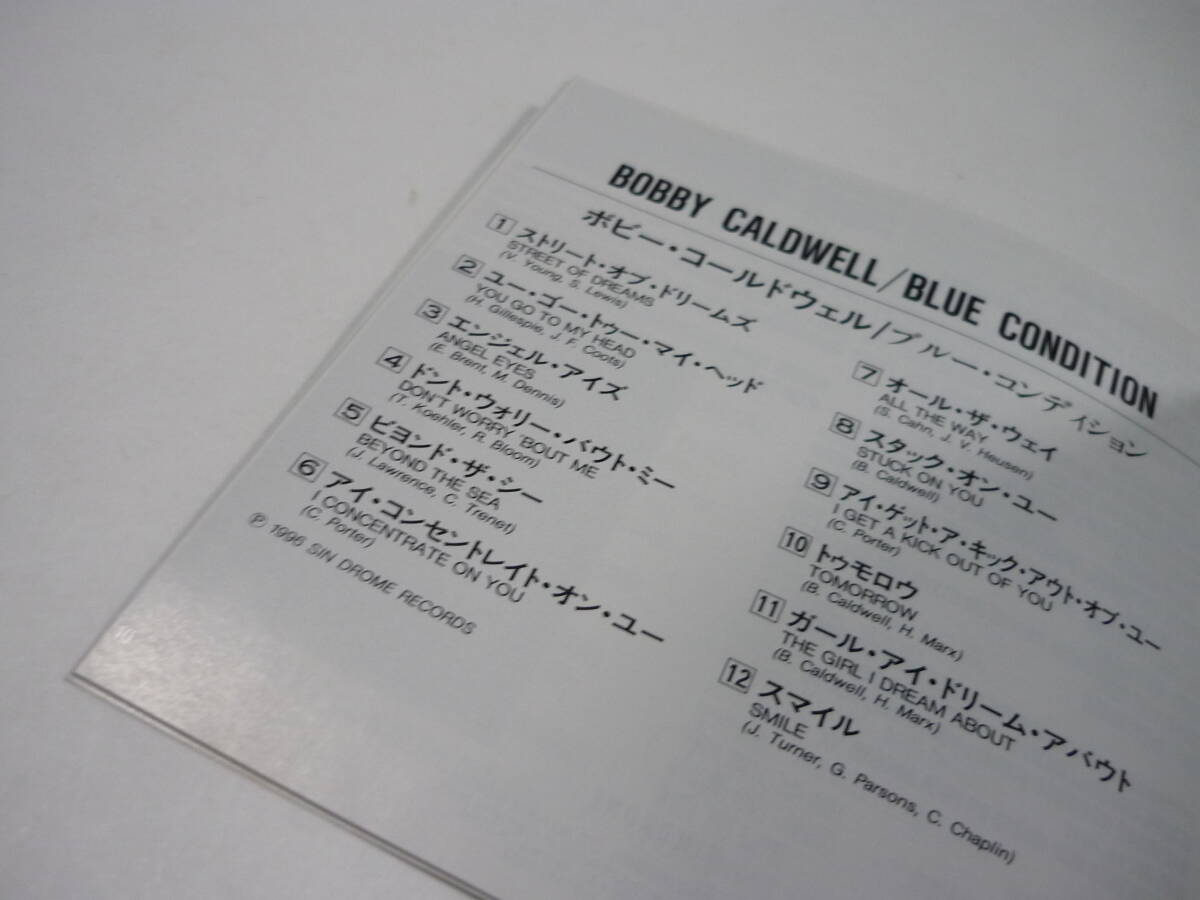 BOBBY CALDWELL/BLUE CONDITION
ボビー・コールドウェル/ブルー・コンディション
1 ストリート・オブ・ドリームズ
STREET OF DREAMS
(V. Young, S. Lewis)
2 ユー・ゴー・トゥー・マイ・ヘッド
YOU GO TO MY HEAD
(H. Gillespie, J. F. Coots)
3 エンジェル・アイズ
ANGEL EYES
(E. Brent, M. Dennis)
4 ドント・ウォリー・バウト・ミー
DON'T WORRY 'BOUT ME
(T. Koehler, R. Bloom)
5 ビヨンド・ザ・シー
BEYOND THE SEA
(J. Lawrence, C. Trenet)
6 アイ・コンセントレイト・オン・ユー
I CONCENTRATE ON YOU
(C. Porter)
Ⓟ 1996 SIN DROME RECORDS
7 オール・ザ・ウェイ
ALL THE WAY
(S. Cahn, J. V. Heusen)
8 スタック・オン・ユー
STUCK ON YOU
(B. Caldwell)
9 アイ・ゲット・ア・キック・アウト・オブ・ユー
I GET A KICK OUT OF YOU
(C. Porter)
10 トゥモロウ
TOMORROW
(B. Caldwell, H. Marx)
11 ガール・アイ・ドリーム・アバウト
THE GIRL I DREAM ABOUT
(B. Caldwell, H. Marx)
12 スマイル
SMILE
(J. Turner, G. Parsons, C. Chaplin)